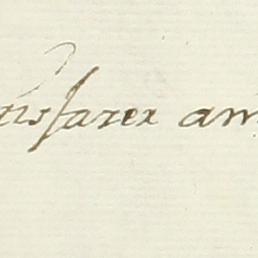 tisfazer am